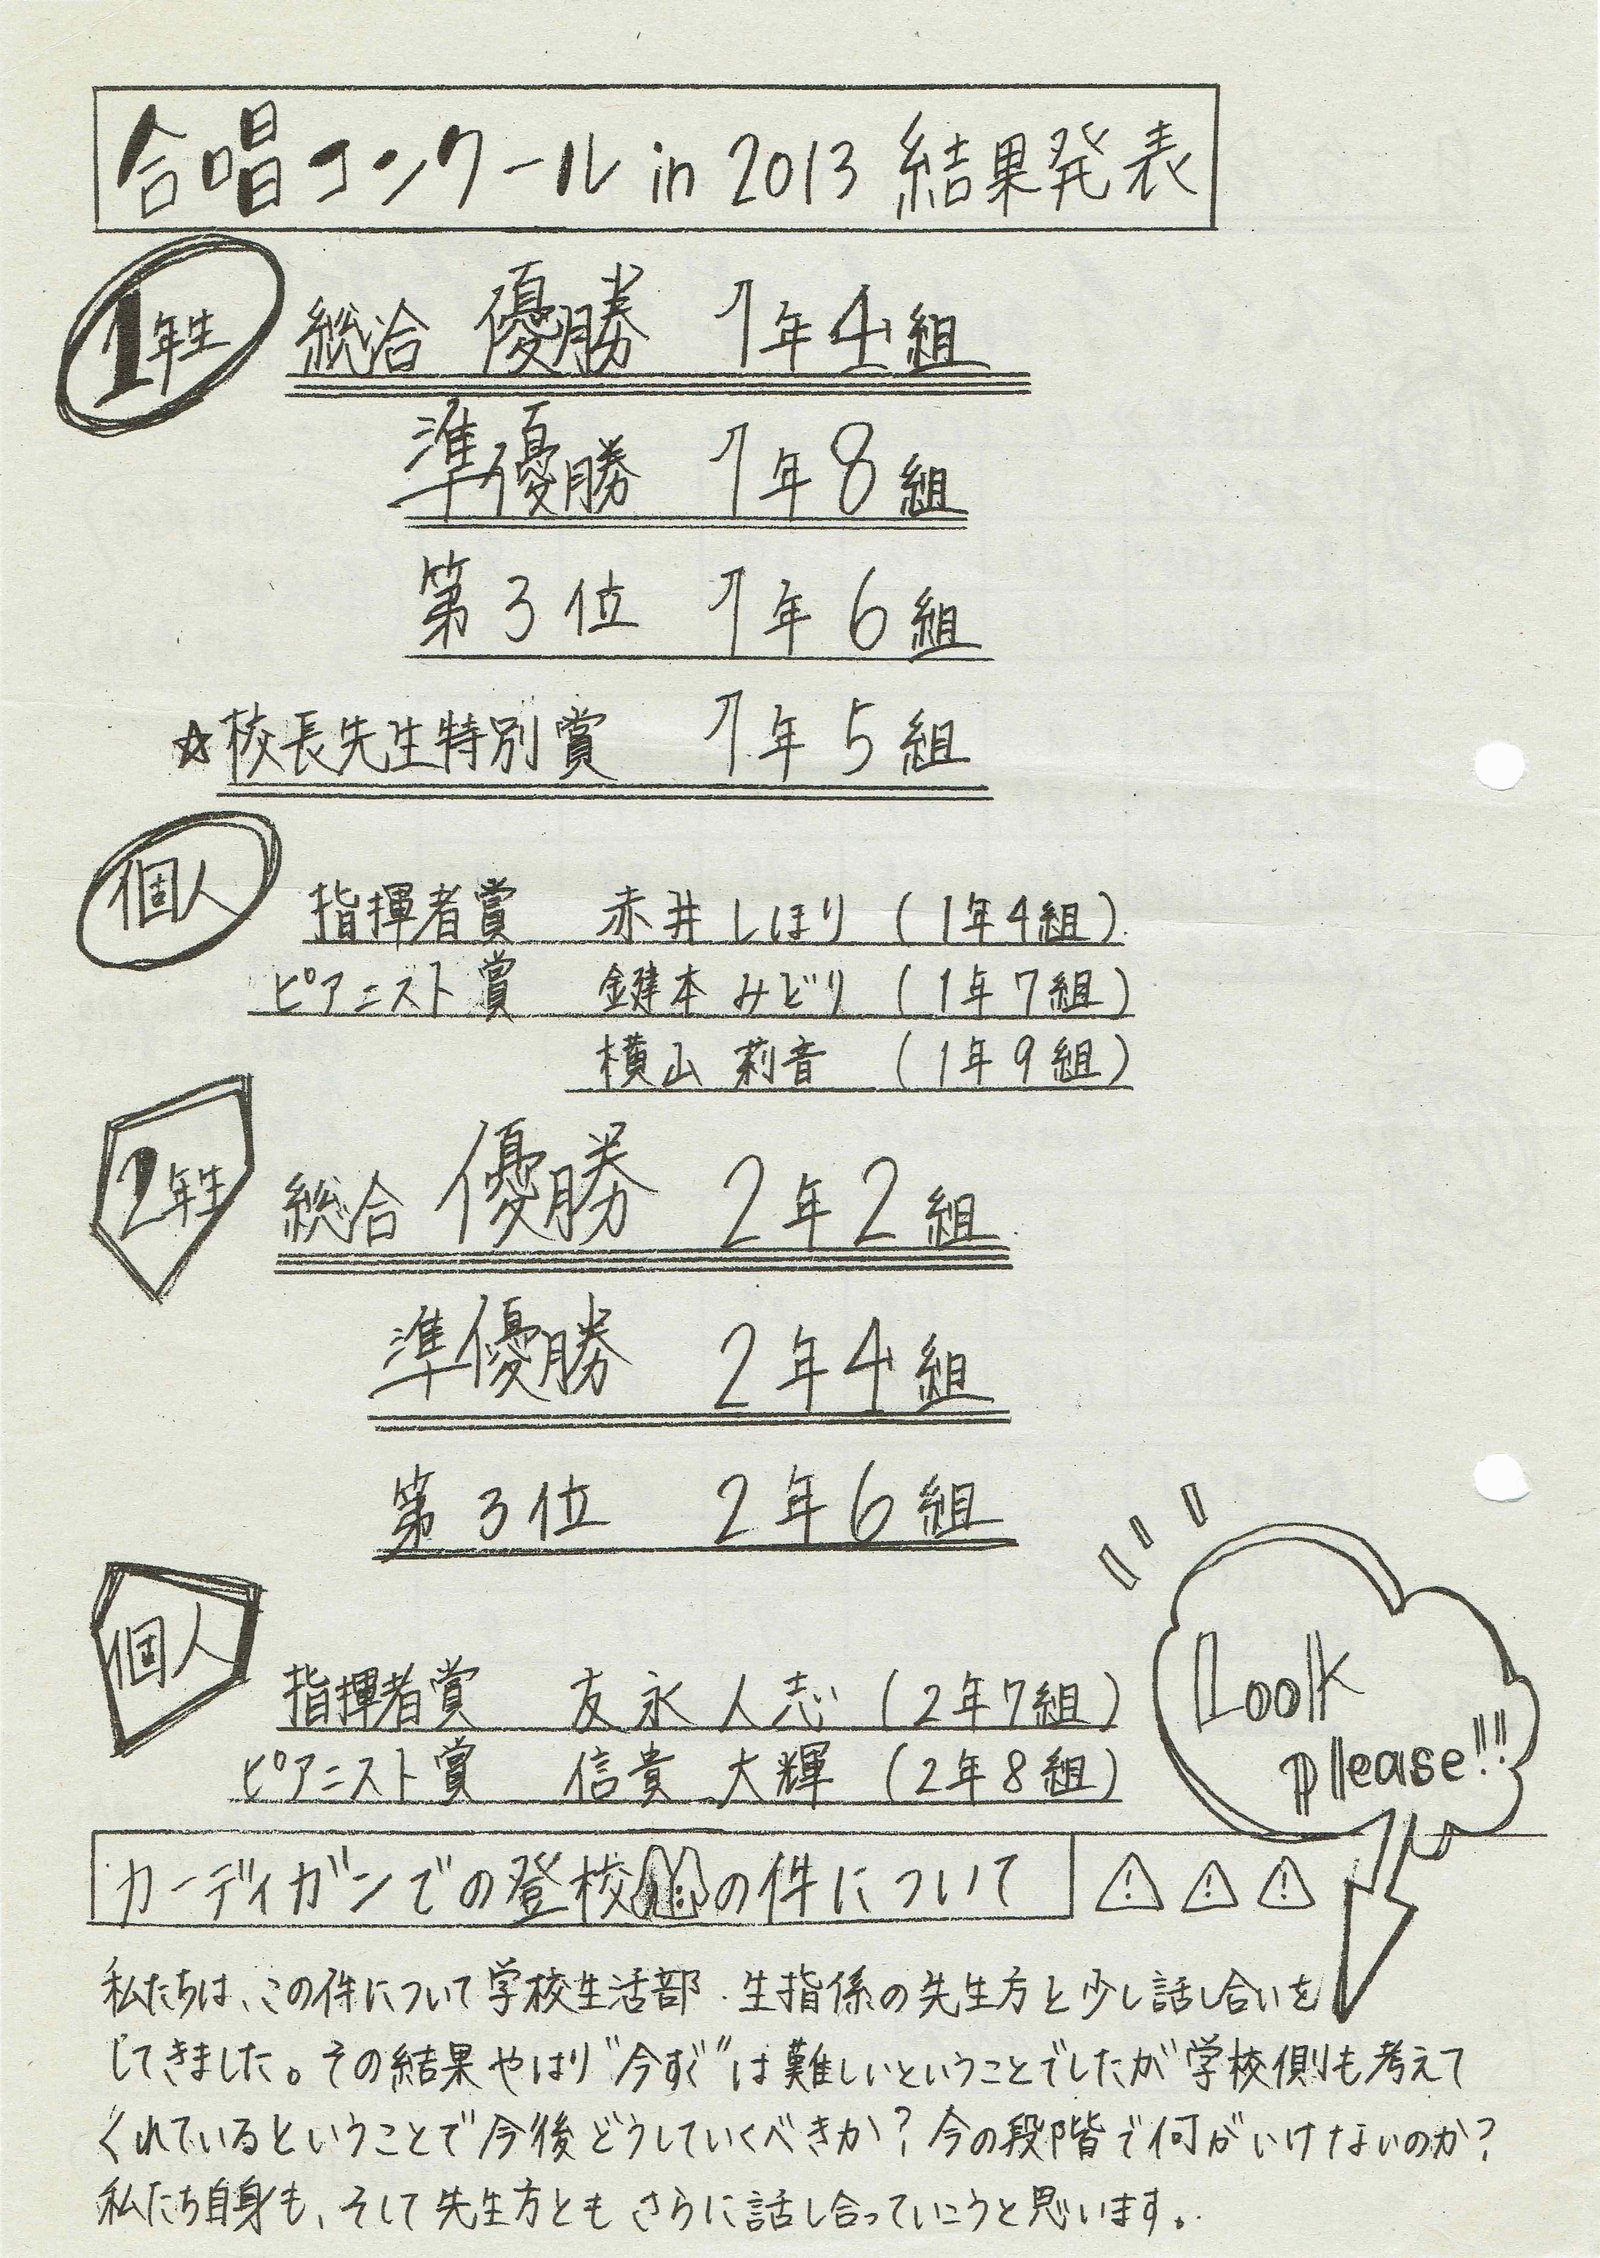 合唱コンクール in 2013 結果発表
1年生
総合 優勝 1年4組
準優勝 1年8組
第3位 1年6組
☆校長先生特別賞 1年5組
個人
指揮者賞 赤井しほり (1年4組)
ピアニスト賞 鍵本みどり (1年7組)
横山 莉音 (1年9組)
2年生
総合 優勝 2年2組
準優勝 2年4組
第3位 2年6組
個人
指揮者賞 友永人志 (2年7組)
ピアニスト賞 信貴 大輝 (2年8組)
Look
please!!
カーディガンでの登校の件について
私たちは、この件について学校生活部・生指係の先生方と少し話し合いを
してきました。その結果やはり“今すぐ”は難しいということでしたが学校側も考えて
くれているということで今後どうしていくべきか?今の段階で何がいけないのか?
私たち自身も、そして先生方ともさらに話し合っていこうと思います。